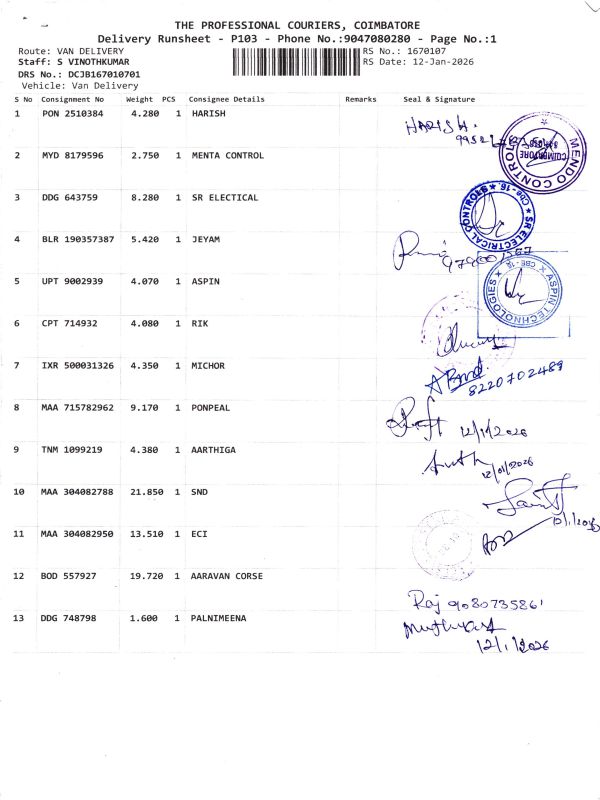 THE PROFESSIONAL COURIERS, COIMBATORE
Delivery Runsheet - P103 - Phone No.:9047080280 - Page No.:1
Route: VAN DELIVERY RS No.: 1670107
Staff: S VINOTHKUMAR RS Date: 12-Jan-2026
DRS No.: DCJB167010701
Vehicle: Van Delivery
S No Consignment No Weight PCS Consignee Details Remarks Seal & Signature
1 PON 2510384 4.280 1 HARISH HARISH.
2 MYD 8179596 2.750 1 MENTA CONTROL MENDO CONTROLS COIMBATORE
3 DDG 643759 8.280 1 SR ELECTICAL ★ SR ELECTRICAL CONTROLS ★ Cbe-16.
4 BLR 190357387 5.420 1 JEYAM
5 UPT 9002939 4.070 1 ASPIN ★ ASPIN TECHNOLOGIES ★ CBE-16
6 CPT 714932 4.080 1 RIK
7 IXR 500031326 4.350 1 MICHOR 8220702489
8 MAA 715782962 9.170 1 PONPEAL 12/1/2026
9 TNM 1099219 4.380 1 AARTHIGA 12/01/2026
10 MAA 304082788 21.850 1 SND
11 MAA 304082950 13.510 1 ECI
12 BOD 557927 19.720 1 AARAVAN CORSE Raj 9080735861
13 DDG 748798 1.600 1 PALNIMEENA
12/1/2026